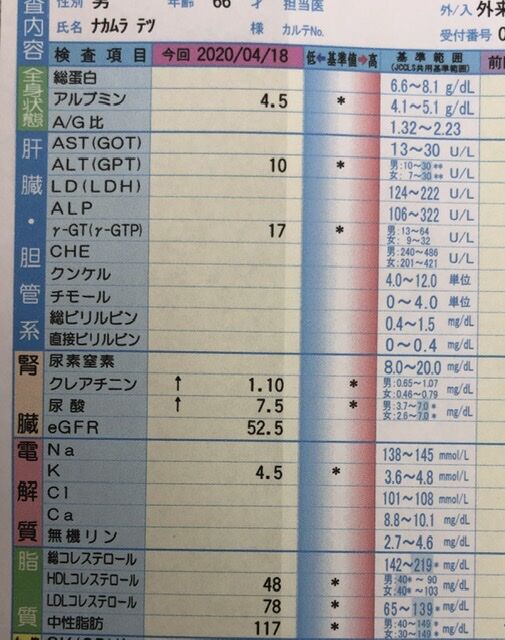 査内容
性別 男 年齢 66 才 担当医
外/入 外来
氏名 ナカムラ テツ 様 カルテNo.
受付番号
検査項目 今回 2020/04/18 低←基準値→高 基準範囲 (JCCLS共用基準範囲) 前回
全身状態
総蛋白 6.6〜8.1 g/dL
アルブミン 4.5 * 4.1〜5.1 g/dL
A/G比 1.32〜2.23
肝臓・胆管系
AST(GOT) 13〜30 U/L
ALT(GPT) 10 * 男:10〜30** 女: 7〜30** U/L
LD(LDH) 124〜222 U/L
ALP 106〜322 U/L
γ-GT(γ-GTP) 17 * 男:13〜64 女: 9〜32 U/L
CHE 男:240〜486 女:201〜421 U/L
クンケル 4.0〜12.0 単位
チモール 0〜4.0 単位
総ビリルビン 0.4〜1.5 mg/dL
直接ビリルビン 0〜0.4 mg/dL
腎臓
尿素窒素 8.0〜20.0 mg/dL
クレアチニン ↑ 1.10 * 男:0.65〜1.07 女:0.46〜0.79 mg/dL
尿酸 ↑ 7.5 * 男:3.7〜7.0* 女:2.6〜7.0* mg/dL
eGFR 52.5
電解質
Na 138〜145 mmol/L
K 4.5 * 3.6〜4.8 mmol/L
Cl 101〜108 mmol/L
Ca 8.8〜10.1 mg/dL
無機リン 2.7〜4.6 mg/dL
脂質
総コレステロール 142〜219* mg/dL
HDLコレステロール 48 * 男:40*〜 90 女:40*〜103 mg/dL
LDLコレステロール 78 * 65〜139* mg/dL
中性脂肪 117 * 男:40〜149* 女:30〜149* mg/dL